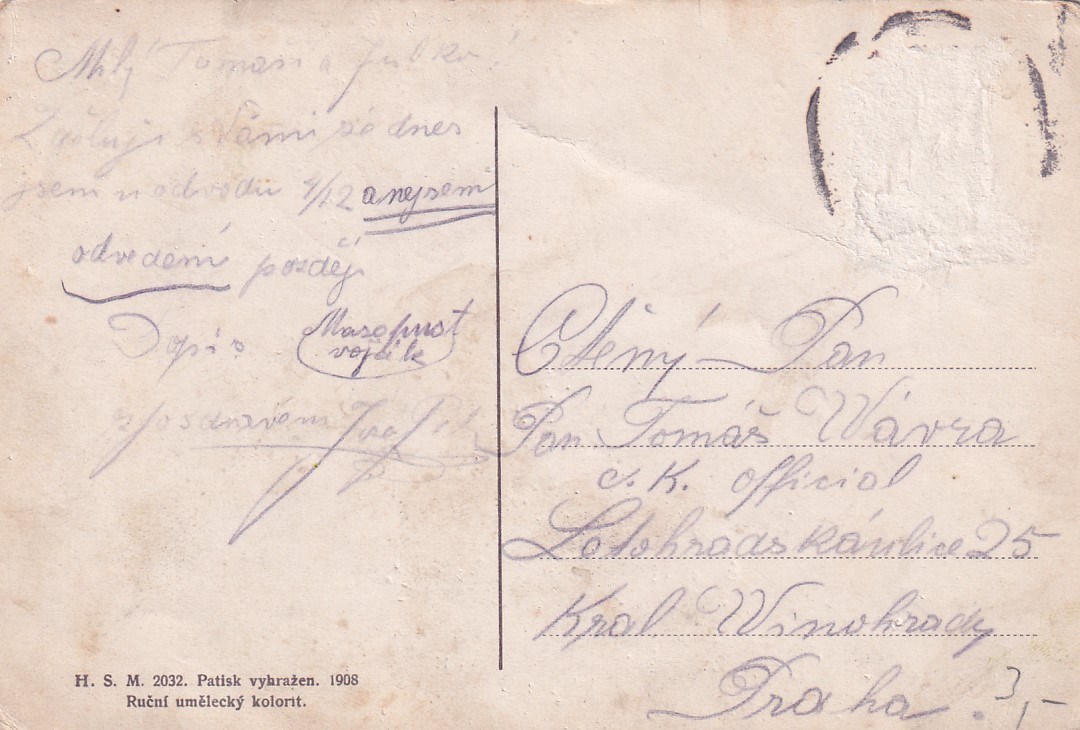 Milý Tomasi a
Zděluji s Vámi že dnes
jsem u odvodu 4/12 a nejsem
odvedení později
Dopis Masopust
voják
s pozdravem
Ctěný Pan
Pan Tomáš Wávra
c. K. official
Letohradská ulice 25
Kral Winohrady
Praha.
3,-
H. S. M. 2032. Patisk vyhražen. 1908
Ruční umělecký kolorit.